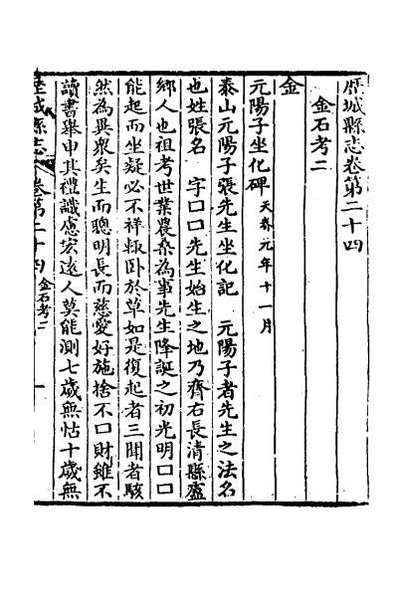 歷城縣志卷第二十四
金石考二
金
元陽子坐化碑 天眷元年十一月
泰山元陽子張先生坐化記 元陽子者先生之法名
也姓張名 字口口先生始生之地乃齊右長清縣盧
鄉人也祖考世業農桑為事先生降誕之初光明口口
能起而坐疑必不祥輒卧於草如是復起者三聞者駭
然為異衆矣生而聰明長而慈愛好施捨不口財雖不
讀書舉中其禮識慮宏遠人莫能測七歲無怙十歲無
歷城縣志 卷第二十四 金石考二 一